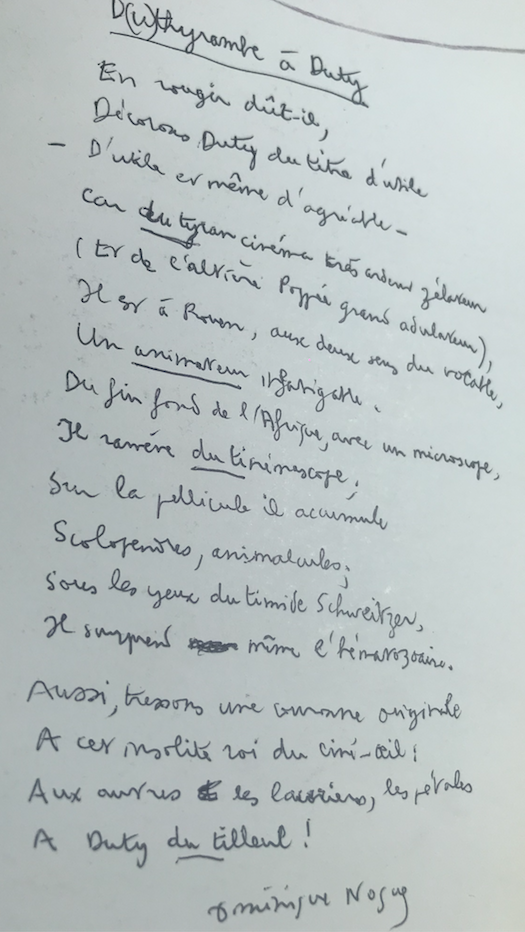 D(u)thyrambe à Duty
En rougir dût-il,
Décorons Duty du titre d'utile
– D'utile et même d'agréable –
Car du tyran cinéma très ardent zélateur
(Et de l'altière Poppée grand adulateur),
Il est à Rouen, aux deux sens du vocable,
Un animateur infatigable.
Du fin fond de l'Afrique, avec un microscope,
Il ramène du tinémascope;
Sur la pellicule il accumule
Scolopendres, animalcules;
Sous les yeux du timide Schweitzer,
Il surprend même l'hématozoaire.
Aussi, tressons une couronne originale
A cet insolite roi du ciné-œil:
Aux autres les lauriers, les pétales
A Duty du tilleul!
Dominique Nogug